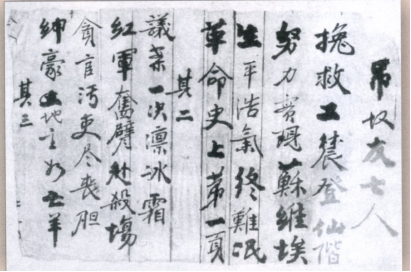 吊奴友七人
挽救工農登仙偕
努力實現蘇維埃
生平浩氣終難泯
革命史上第一頁
其二
議案一次凛冰霜
紅軍奮臂赴殺塲
貪官污吏尽喪胆
紳豪地主如亡羊
其三